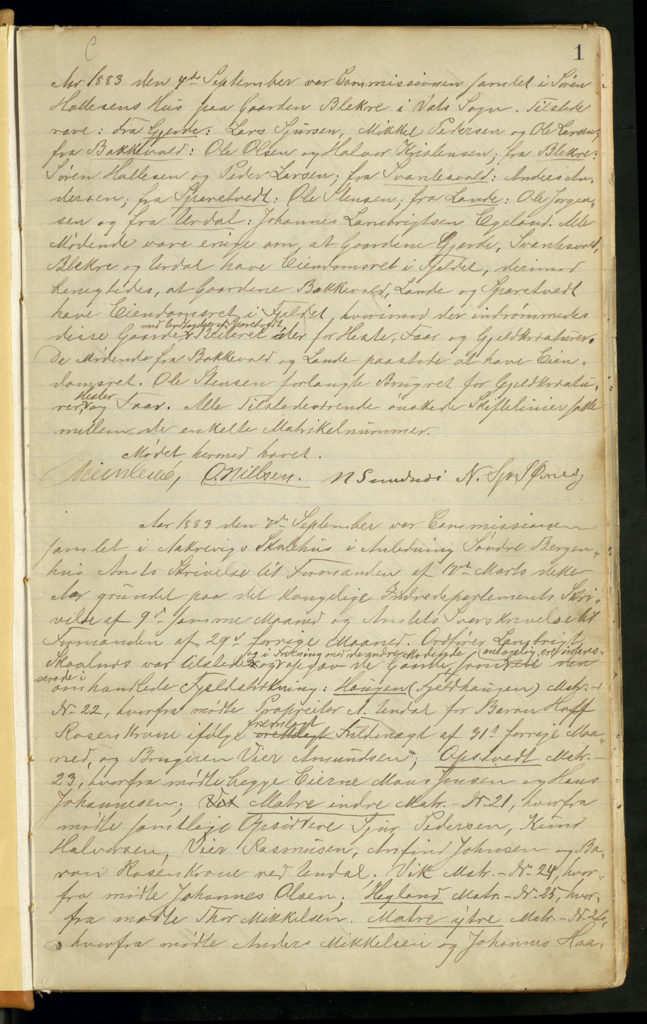 C
1
Aar 1883 den 4de September var Commissionen samlet i Søren
Hallesens Hus paa Gaarden Blekre i Vats Sogn. Tilstede
vare: fra Gjerde: Lars Sjursen, Mikkel Pedersen og Ole Larsen,
fra Bakkevold: Ole Olsen og Halvor Kristensen; fra Blekre:
Søren Hallesen og Peder Larsen; fra Svantesvold: Anders An-
dersen; fra Sparetvedt: Ole Stensen; fra Lunde: Ole Jørgen-
sen og fra Urdal: Johannes Lambrigtsen Egeland. Alle
Mødende vare enige om, at Gaardene Gjerde, Svantesvold,
Blekre og Urdal have Eiendomsret i Fjeldet, derimod
benegtedes, at Gaardene Bakkevold, Lunde og Sparetvedt
have Eiendomsret i Fjeldet, hvorimod der indrømmedes
disse Gaarde Beiteret for Heste, Faar og Gjeldkreaturer.
De Mødende fra Bakkevold og Lunde paastode at have Eien-
domsret. Ole Stensen forlangte Brugret for Gjeldkreatu-
rer, Hester og Faar. Alle Tilstedeværende ønskede Skiftelinier satte
mellem de enkelte Matrikelnummer.
Mødet hermed hævet.
O. Nielsen. N Sundnes
Aar 1883 den 7de September var Commissionen
samlet i Aakrevigs Skolehus i Anledning Søndre Bergen-
hus Amts Skrivelse til Formanden af 17de Marts dette
Aar grundet paa det kongelige Indredepartements Skri-
velse af 9de samme Maaned og Amtets Svarskrivelse til
Formanden af 29de forrige Maaned. Ordfører Langbrigt
Skaalnes var tilstede og i Forkning med de andre Mødende antaglig ere interes-
serede i
omhandlede Fjeldstrækning: Haugen (Fjeldhaugen) Matr.-
No 22, hvorfra mødte Proprietær A. Undal for Baron Hoff
Rosenkrone ifølge fremlagt Fuldmagt af 31te forrige Maa-
ned, og Brugeren Vier Amundsen; Opstvedt Matr.-
23, hvorfra mødte begge Eierne Mons Jensen og Hans
Johannesen; Matre indre Matr.-No 21, hvorfra
mødte samtlige Opsiddere Sjur Pedersen, Knud
Halvorsen, Vier Rasmusen, Arnfind Johnsen og Ba-
ron Rosenkrone ved Undal. Vik Matr.-No 24, hvor-
fra mødte Johannes Olsen. Hegland Matr.-No 25, hvor-
fra mødte Thor Mikkelsen. Matre ytre Matr.-No 26,
hvorfra mødte Anders Mikkelsen og Johannes Haa-